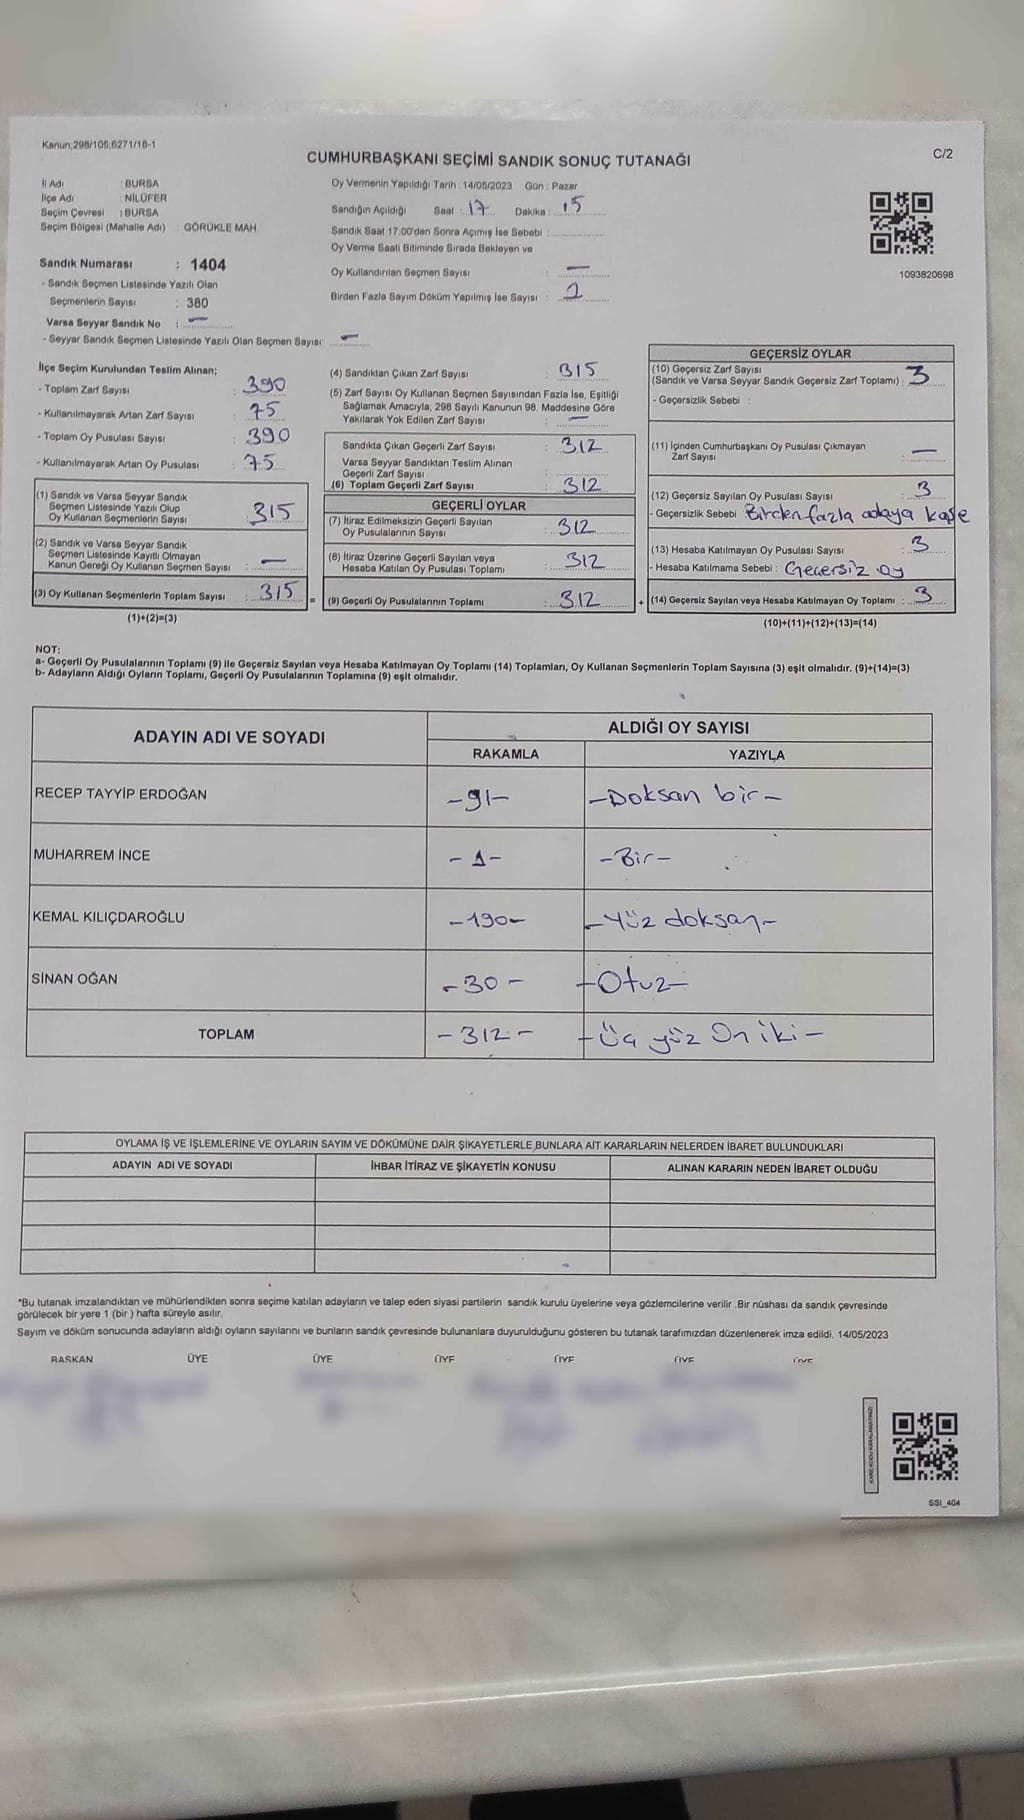 Kanun;298/105;6271/18-1
CUMHURBAŞKANI SEÇİMİ SANDIK SONUÇ TUTANAĞI
C/2
İl Adı : BURSA
İlçe Adı : NİLÜFER
Seçim Çevresi : BURSA
Seçim Bölgesi (Mahalle Adı) : GÖRÜKLE MAH.
Sandık Numarası : 1404
- Sandık Seçmen Listesinde Yazılı Olan
Seçmenlerin Sayısı : 380
Varsa Seyyar Sandık No : —
- Seyyar Sandık Seçmen Listesinde Yazılı Olan Seçmen Sayısı: —
Oy Vermenin Yapıldığı Tarih : 14/05/2023 Gün : Pazar
Sandığın Açıldığı Saat : 17 Dakika : 15
Sandık Saat 17:00'den Sonra Açımış İse Sebebi :
Oy Verme Saati Bitiminde Sırada Bekleyen ve
Oy Kullandırılan Seçmen Sayısı : —
Birden Fazla Sayım Döküm Yapılmış İse Sayısı :
1093820698
İlçe Seçim Kurulundan Teslim Alınan;
- Toplam Zarf Sayısı : 390
- Kullanılmayarak Artan Zarf Sayısı : 75
- Toplam Oy Pusulası Sayısı : 390
- Kullanılmayarak Artan Oy Pusulası : 75
(1) Sandık ve Varsa Seyyar Sandık
Seçmen Listesinde Yazılı Olup
Oy Kullanan Seçmenlerin Sayısı : 315
(2) Sandık ve Varsa Seyyar Sandık
Seçmen Listesinde Kayıtlı Olmayan
Kanun Gereği Oy Kullanan Seçmen Sayısı : —
(3) Oy Kullanan Seçmenlerin Toplam Sayısı : 315
(1)+(2)=(3)
(4) Sandıktan Çıkan Zarf Sayısı : 315
(5) Zarf Sayısı Oy Kullanan Seçmen Sayısından Fazla İse, Eşitliği
Sağlamak Amacıyla; 298 Sayılı Kanunun 98. Maddesine Göre
Yakılarak Yok Edilen Zarf Sayısı : —
Sandıkta Çıkan Geçerli Zarf Sayısı : 312
Varsa Seyyar Sandıktan Teslim Alınan
Geçerli Zarf Sayısı :
(6) Toplam Geçerli Zarf Sayısı : 312
GEÇERLİ OYLAR
(7) İtiraz Edilmeksizin Geçerli Sayılan
Oy Pusulalarının Sayısı : 312
(8) İtiraz Üzerine Geçerli Sayılan veya
Hesaba Katılan Oy Pusulası Toplamı : 312
= (9) Geçerli Oy Pusulalarının Toplamı : 312
GEÇERSİZ OYLAR
(10) Geçersiz Zarf Sayısı
(Sandık ve Varsa Seyyar Sandık Geçersiz Zarf Toplamı) : 3
- Geçersizlik Sebebi :
(11) İçinden Cumhurbaşkanı Oy Pusulası Çıkmayan
Zarf Sayısı : —
(12) Geçersiz Sayılan Oy Pusulası Sayısı : 3
- Geçersizlik Sebebi Birden fazla adaya kaşe
(13) Hesaba Katılmayan Oy Pusulası Sayısı : 3
- Hesaba Katılmama Sebebi : Gecersiz oy
+ (14) Geçersiz Sayılan veya Hesaba Katılmayan Oy Toplamı : 3
(10)+(11)+(12)+(13)=(14)
NOT:
a- Geçerli Oy Pusulalarının Toplamı (9) ile Geçersiz Sayılan veya Hesaba Katılmayan Oy Toplamı (14) Toplamları, Oy Kullanan Seçmenlerin Toplam Sayısına (3) eşit olmalıdır. (9)+(14)=(3)
b- Adayların Aldığı Oyların Toplamı, Geçerli Oy Pusulalarının Toplamına (9) eşit olmalıdır.
ADAYIN ADI VE SOYADI
ALDIĞI OY SAYISI
RAKAMLA YAZIYLA
RECEP TAYYİP ERDOĞAN -91- -Doksan bir-
MUHARREM İNCE -1- -Bir-
KEMAL KILIÇDAROĞLU -190- -Yüz doksan-
SİNAN OĞAN -30- -Otuz-
TOPLAM -312- -Üç yüz On iki-
OYLAMA İŞ VE İŞLEMLERİNE VE OYLARIN SAYIM VE DÖKÜMÜNE DAİR ŞİKAYETLERLE BUNLARA AİT KARARLARIN NELERDEN İBARET BULUNDUKLARI
ADAYIN ADI VE SOYADI İHBAR İTİRAZ VE ŞİKAYETİN KONUSU ALINAN KARARIN NEDEN İBARET OLDUĞU
*Bu tutanak imzalandıktan ve mühürlendikten sonra seçime katılan adayların ve talep eden siyasi partilerin sandık kurulu üyelerine veya gözlemcilerine verilir .Bir nüshası da sandık çevresinde
görülecek bir yere 1 (bir ) hafta süreyle asılır.
Sayım ve döküm sonucunda adayların aldığı oyların sayılarını ve bunların sandık çevresinde bulunanlara duyurulduğunu gösteren bu tutanak tarafımızdan düzenlenerek imza edildi. 14/05/2023
BAŞKAN ÜYE ÜYE ÜYE ÜYE ÜYE ÜYE
KARE KODU KARALAMAYINIZ!
SSI_404